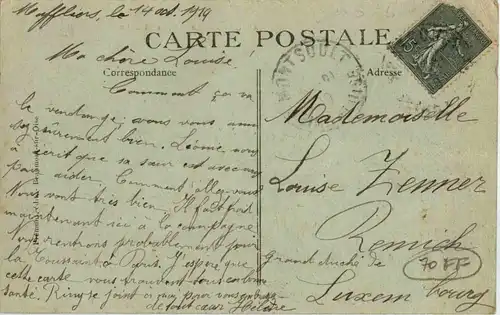 Maffliers, le 14 oct. 1919
CARTE POSTALE
Correspondance
Adresse
MONTSOULT
Ma chère Louise
Comment ça va
la vendange; avous vous
sûrement bien. Léonie nous
à écrit que sa sœur est avec vous
pour aider. Comment allez vous
Nous vont très bien. Il fait froid
maintenant ici à la campagne
Nous rentrons probablement pour
la Toussaint à Paris. J'espère que
cette carte vous trouvent tous en bonne
santé. se joint à moi pour vous embrasser
de tout cœur Hélène
Mademoiselle
Louise Zenner
Remich
Grand duché de
Luxembourg
70 FF